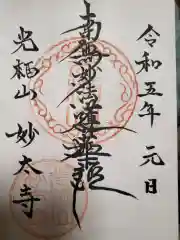 令和五年 元日
南無妙法蓮華経
光福山 妙太寺